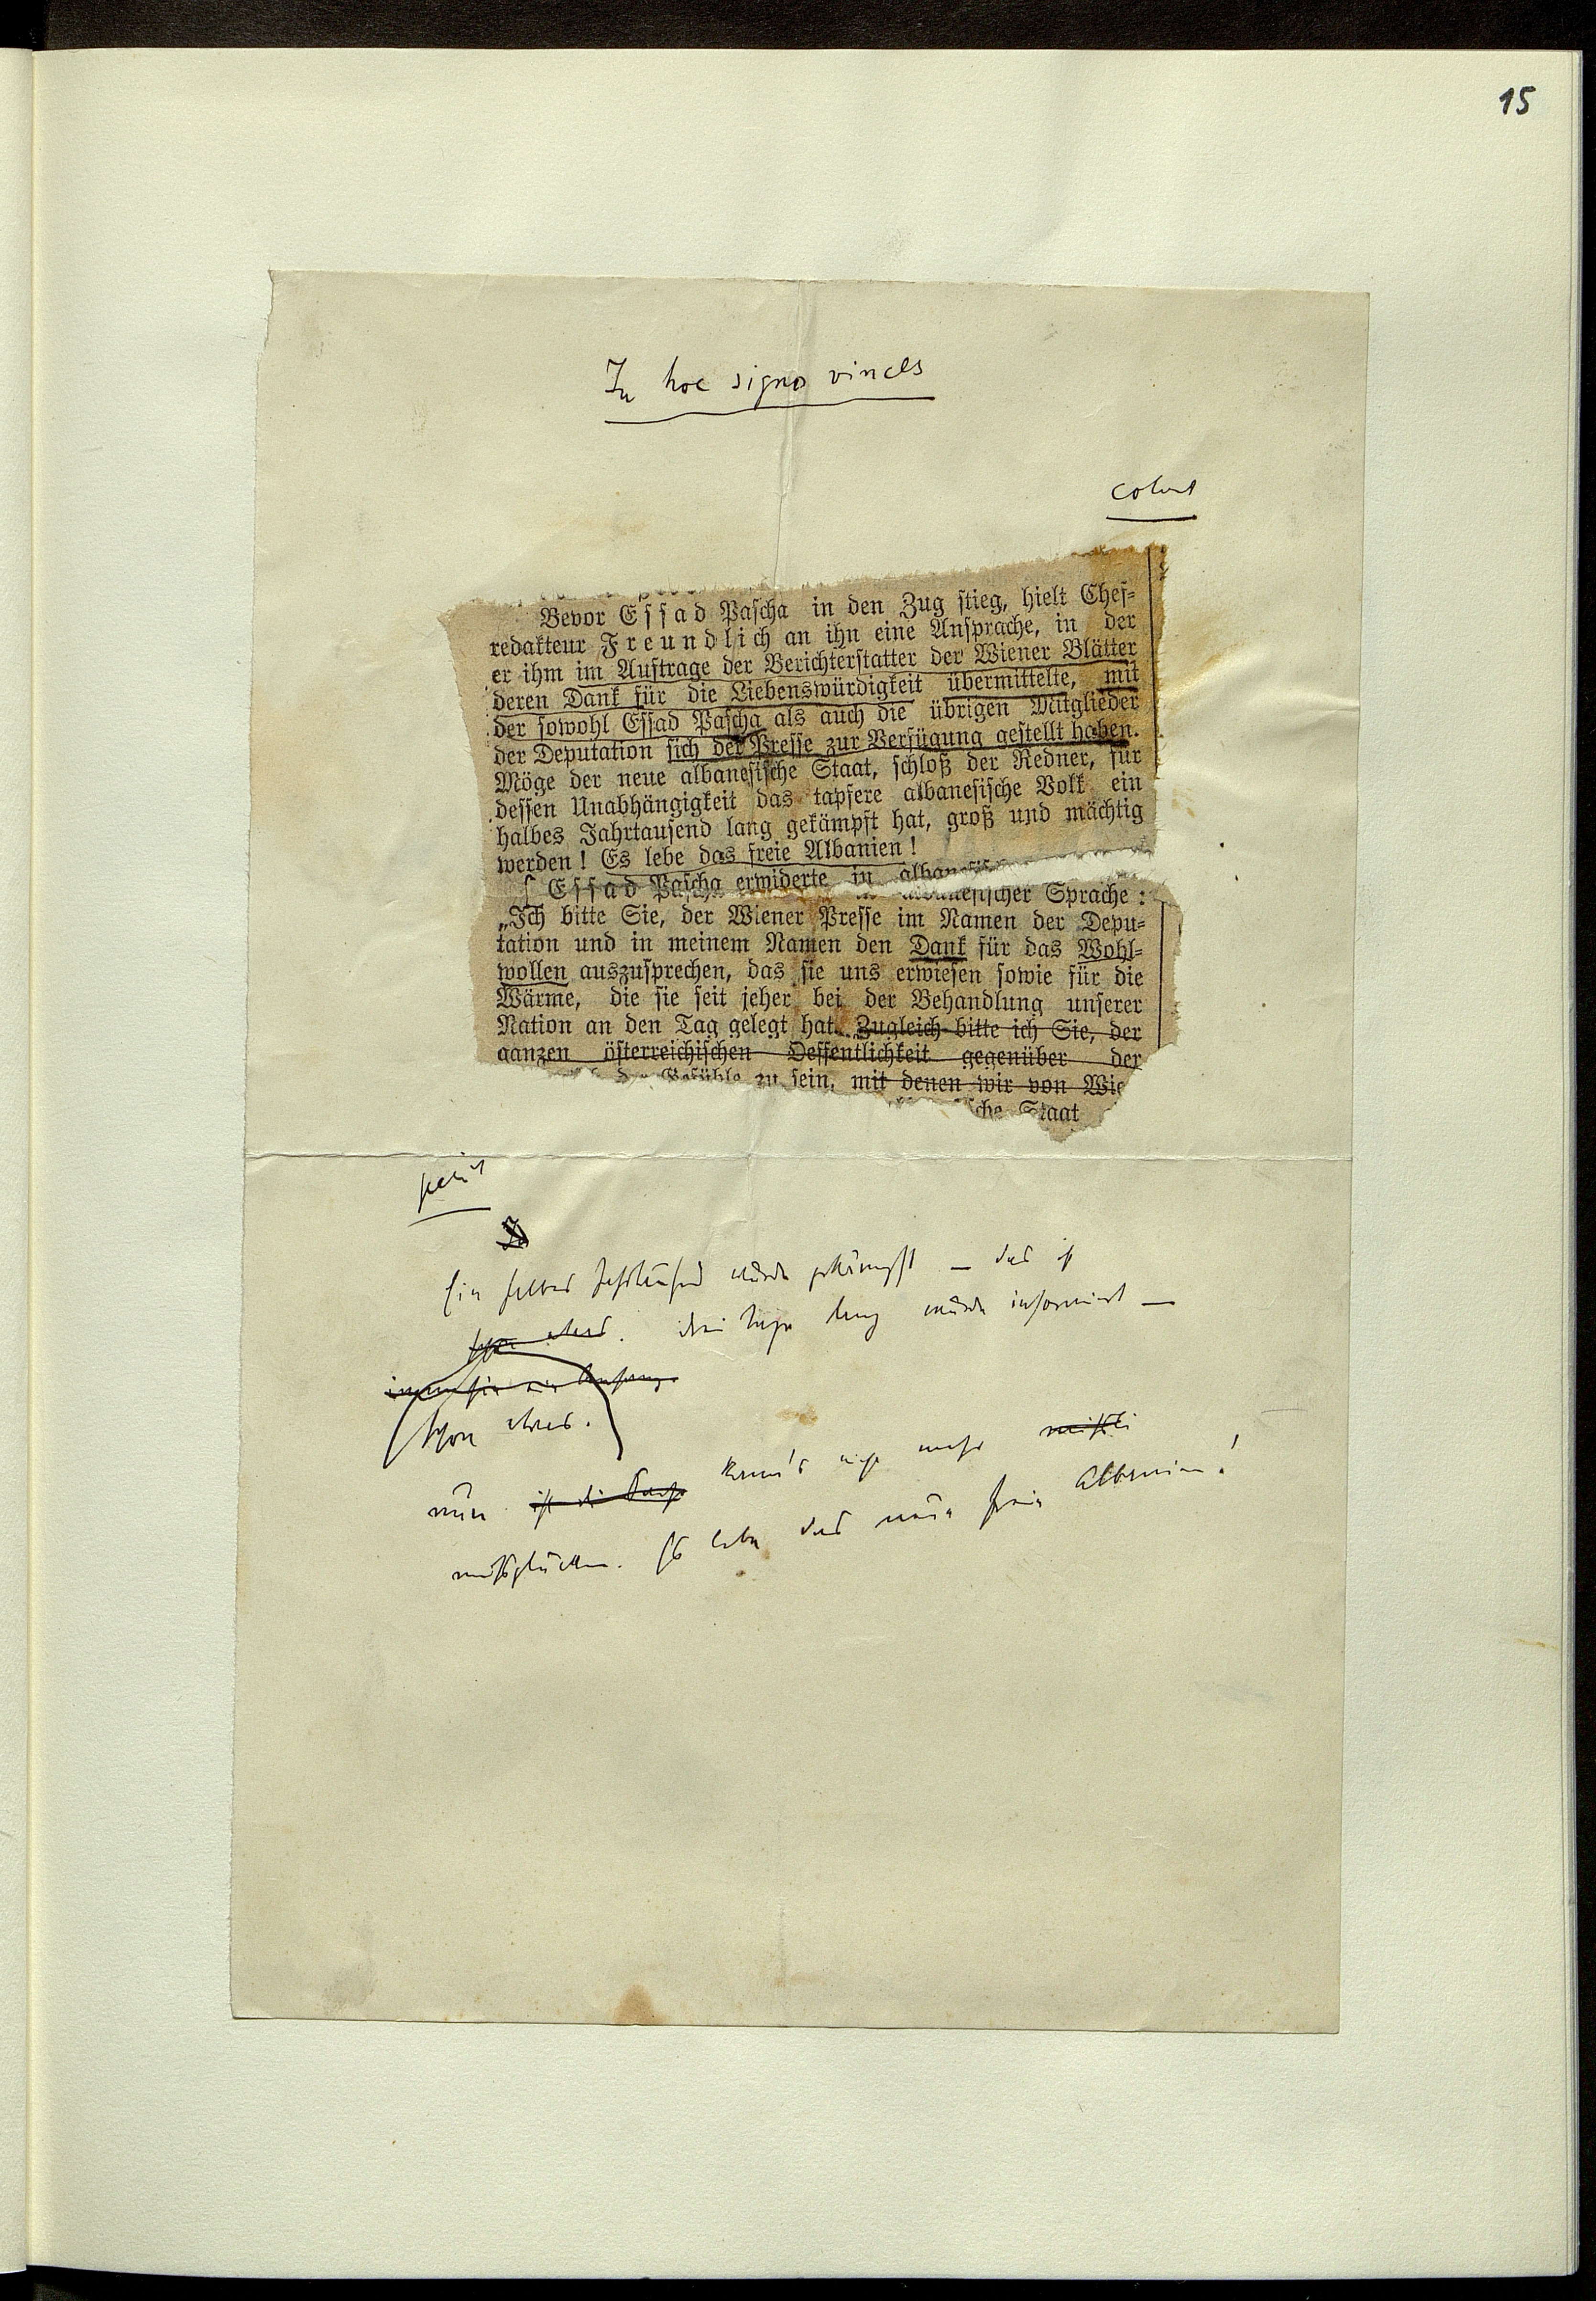 15
In hoc signo vinces
Bevor Essad Pascha in den Zug stieg, hielt Chef-
redakteur Freundlich an ihn eine Ansprache, in der
er ihm im Auftrage der Berichterstatter der Wiener Blätter
deren Dank für die Liebenswürdigkeit übermittelte, mit
der sowohl Essad Pascha als auch die übrigen Mitglieder
der Deputation sich der Presse zur Verfügung gestellt haben.
Möge der neue albanesische Staat, schloß der Redner, für
dessen Unabhängigkeit das tapfere albanesische Volk ein
halbes Jahrtausend lang gekämpft hat, groß und mächtig
werden! Es lebe das freie Albanien!
Essad Pascha erwiderte in albanesischer Sprache:
„Ich bitte Sie, der Wiener Presse im Namen der Depu-
tation und in meinem Namen den Dank für das Wohl-
wollen auszusprechen, das sie uns erwiesen sowie für die
Wärme, die sie seit jeher bei der Behandlung unserer
Nation an den Tag gelegt hat. Zugleich bitte ich Sie, der
ganzen österreichischen Oeffentlichkeit gegenüber der
Gefühle zu sein, mit denen wir von Wie
sche Staat
petit
Ein halbes Jahrtausend wurde gekämpft — das ist
schon etwas. drei Tage lang wurde informiert —
immerhin ein Anfang
schon etwas.
nun ist die Sache kann's nicht mehr
mißglücken. Es lebe das neue freie Albanien!